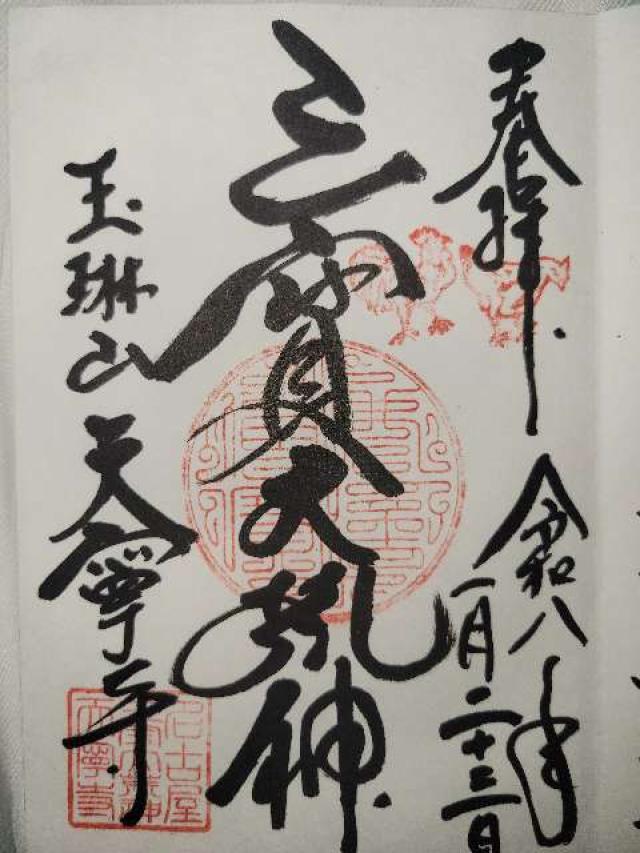 奉拝
令和八年
一月二十三日
三寳大荒神
玉琳山
天寧寺
名古屋
天寧寺